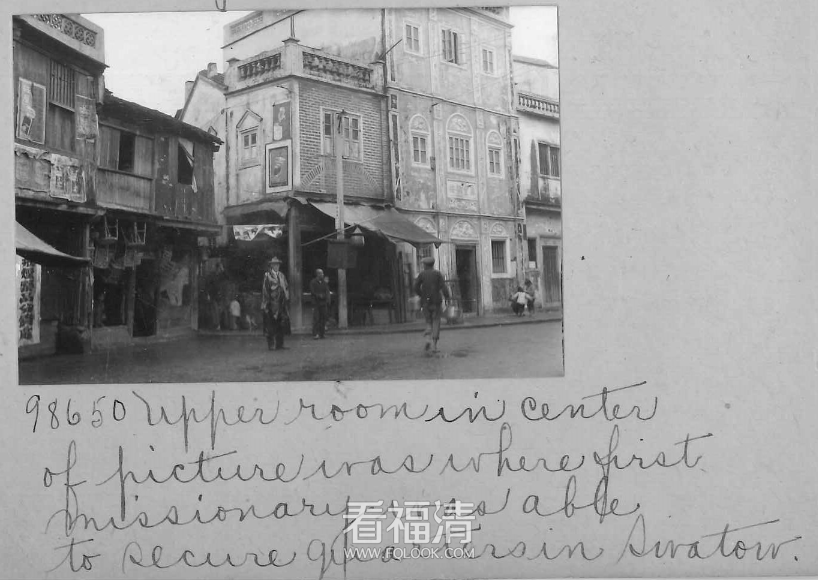 98650 Upper room in center
of picture was where first
missionary was able
to secure quarters in Swatow.
看福清
www.FOLOOK.COM